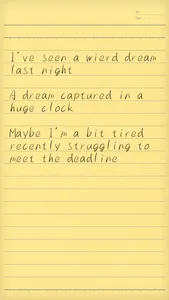 I've seen a wierd dream
last night
A dream captured in a
huge clock
Maybe I'm a bit tired
recently struggling to
meet the deadline